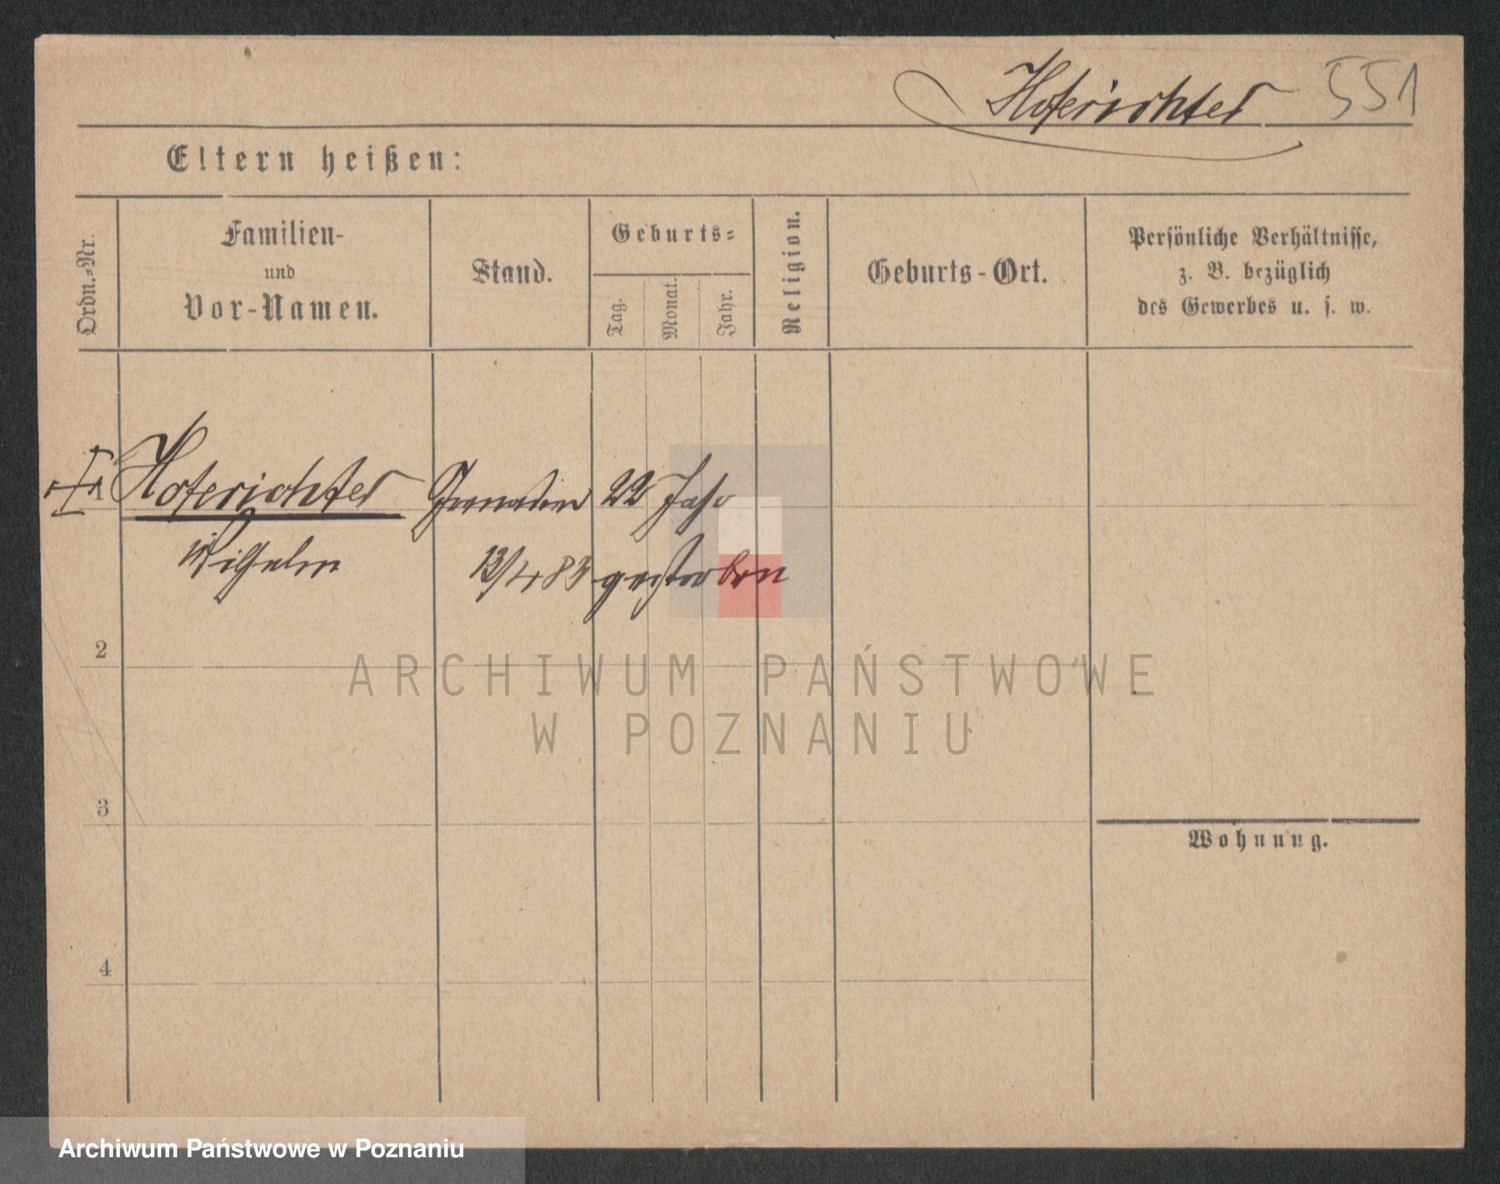 Hoferichter 551
Eltern heißen:
Ordn.-Nr.
Familien-
und
Vor-Namen.
Stand.
Geburts-
Tag.
Monat.
Jahr.
Religion.
Geburts-Ort.
Persönliche Verhältnisse,
z. B. bezüglich
des Gewerbes u. s. w.
1 Hoferichter Grenadier 22 Jahr
Wilhelm 13/4 83 gestorben
2
ARCHIWUM PAŃSTWOWE
W POZNANIU
3
Wohnung.
4
Archiwum Państwowe w Poznaniu